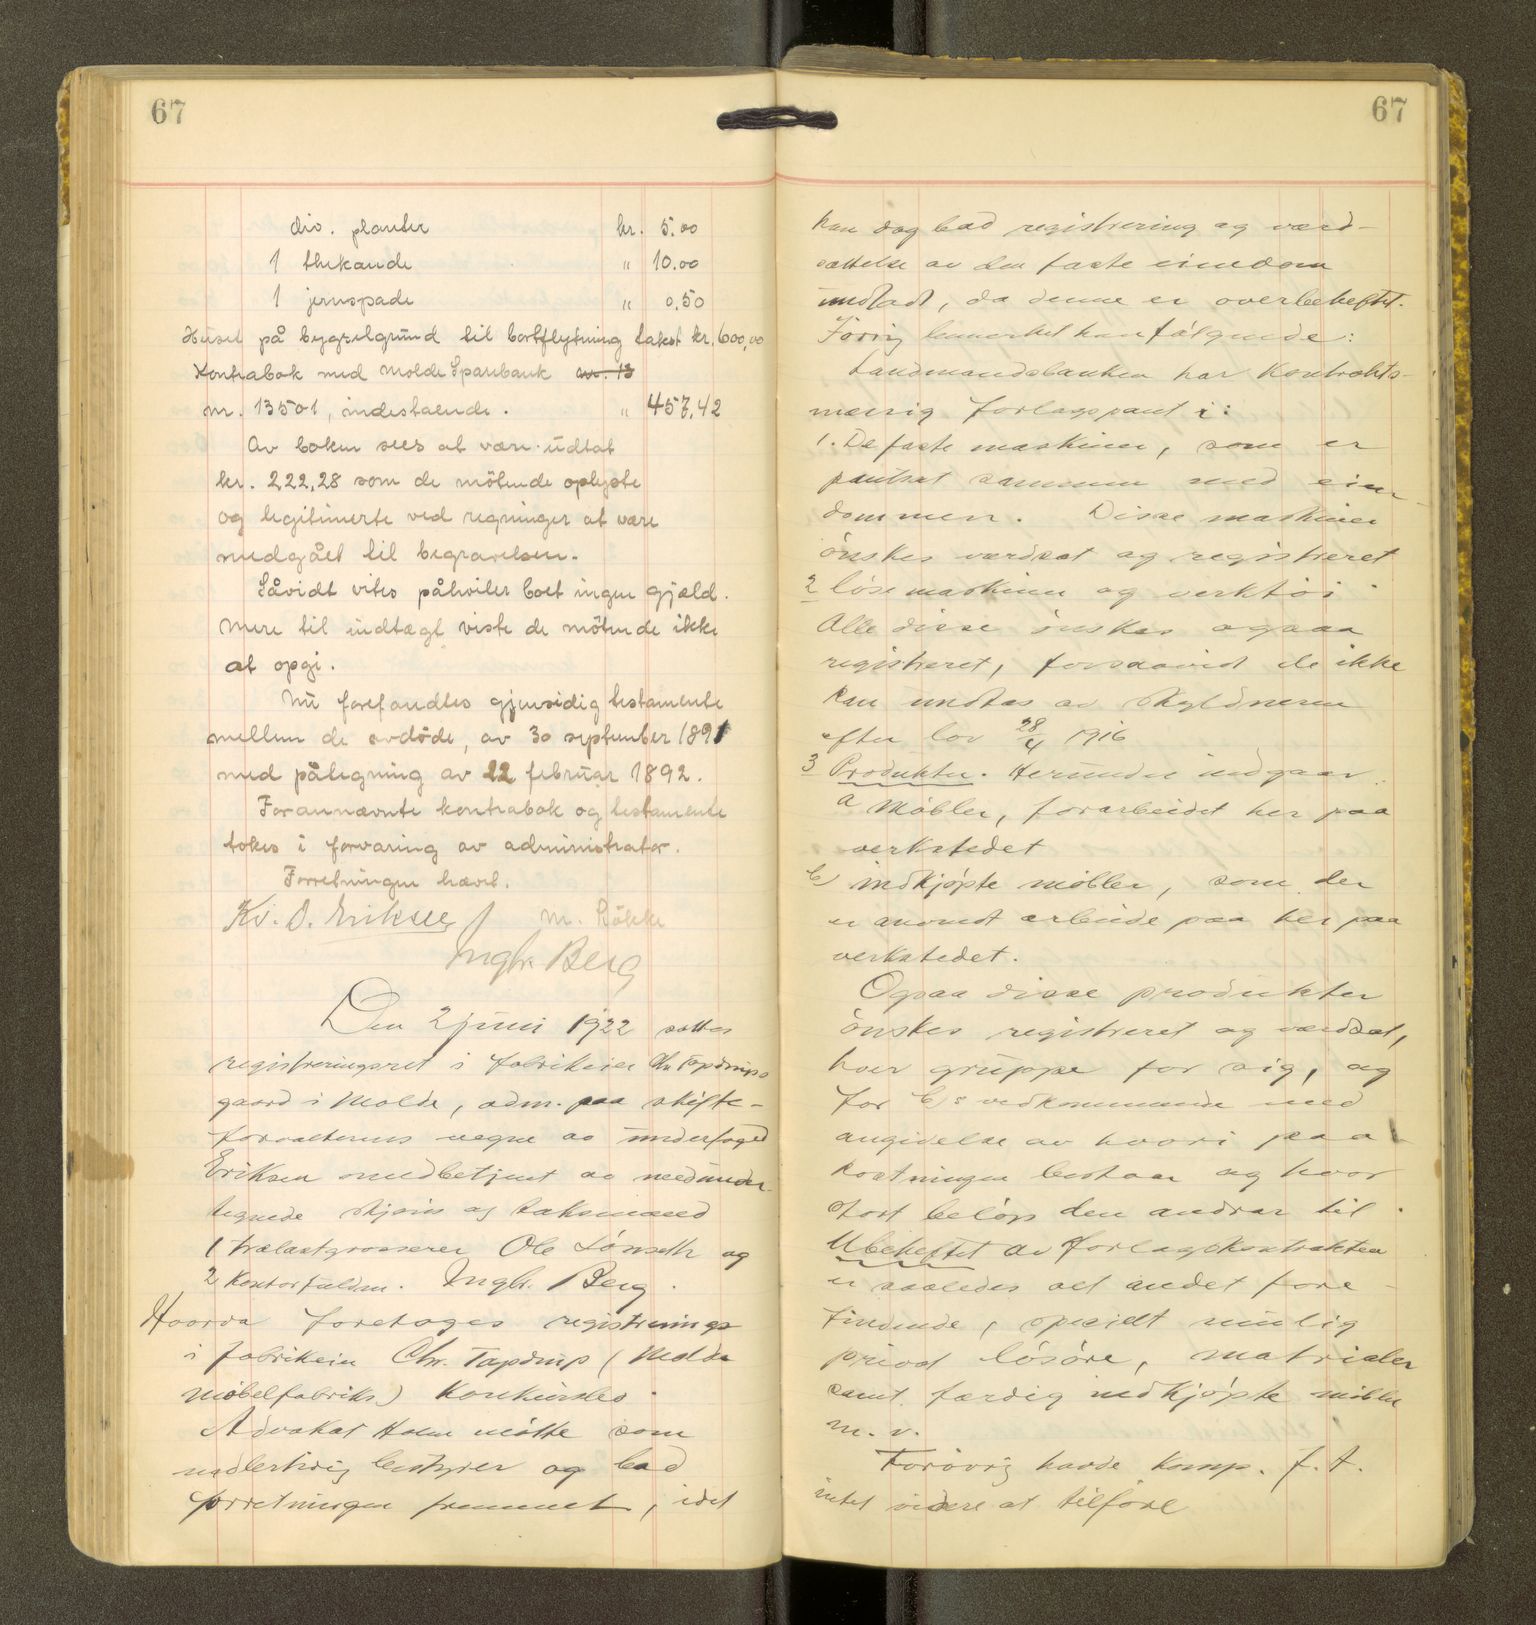 67
div. planter kr. 5.00
1 thekande " 10.00
1 jernspade " 0.50
Huset på bygselgrund til bortflytning takst kr. 600,00
Kontrabok med Molde Sparebank av. 13
nr. 13501, indestaaende. " 457,42
Av boken sees at være udtat
kr. 222,28 som de mötende oplyste
og legitimerte ved regninger at være
medgået til begravelsen.
Såvidt vites påhviler boet ingen gjæld.
Mere til indtægt viste de mötende ikke
at opgi.
Nu forefandtes gjensidig testamente
mellem de avdöde, av 30 september 1891
med påtegning av 22 februar 1892.
Forannævnte kontrabok og testamente
tokes i forvaring av administrator.
Forretningen hævet.
Kr. O. Eriksen M. Lökke
Ingbr. Berg
Den 2 juni 1922 sattes
registreringsret i fabrikeier Chr Tapdrups
gaard i Molde, adm. paa skifte-
forvalterens vegne av underfoged
Eriksen med betjent av medunder
tegnede skjöns og taksmænd
1 trælastgrosserer Ole Lönseth og
2 Kontorfuldm. Ingbr. Berg.
Hvorda foretoges registrerings
i fabrikeier Chr. Tapdrup (Molde
Møbelfabriks) Konkursbo.
Advokat Holm møtte som
midlertidig bestyrer og bad
forretningen fremmet, idet
67
han dog bad registrering og værd-
sættelse av den faste eiendom
undlatt, da denne er overbeheftet.
Forøvrig bemerket han følgende:
Landmandsbanken har Kontrakts-
mæssig forlagspant i:
1. De faste maskiner, som er
pantsat sammen med eien-
dommen. Disse maskiner
ønskes værdsat og registreret
2 løse maskiner og verktøi.
Alle disse ønskes ogsaa
registreret, forsaavidt de ikke
kan undtas av skyldneren
efter lov 28/4 1916
3 Produkter. Herunder indgaar
a Møbler, forarbeidet her paa
verkstedet
b) indkjøpte møbler, som der
er anvendt arbeide paa her paa
verkstedet.
Ogsaa disse produkter
ønskes registreret og værdsat,
hver gruppe for sig, og
for b's vedkommende med
angivelse av hvori paa
kostningen bestaar og hvor
stort beløp den andrar til.
Ubeheftet av forlagskontrakten
er saaledes alt andet fore-
findende, specielt nemlig
privat løsøre, matrialer
samt færdig indkjøpte møbler
m. v.
Forøvrig havde komp. f. t.
intet videre at tilføre